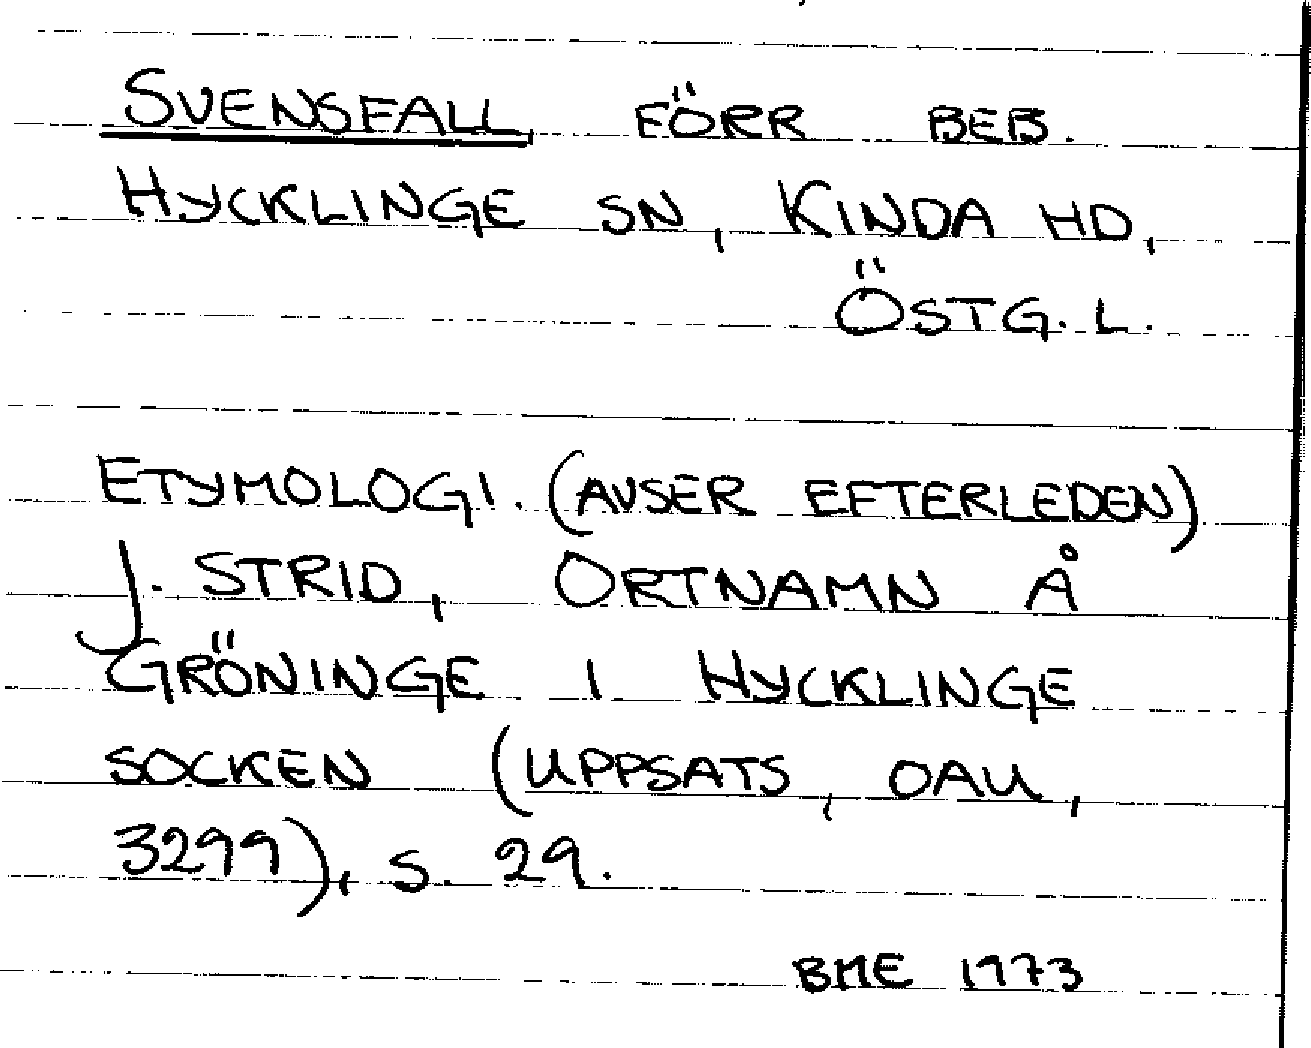 SVENSFALL FÖRR BEB.
HYCKLINGE SN, KINDA HD,
ÖSTG. L.
ETYMOLOGI. (AVSER EFTERLEDEN)
J. STRID, ORTNAMN Å
GRÖNINGE I HYCKLINGE
SOCKEN (UPPSATS, OAU,
3299), S. 29.
BME 1973